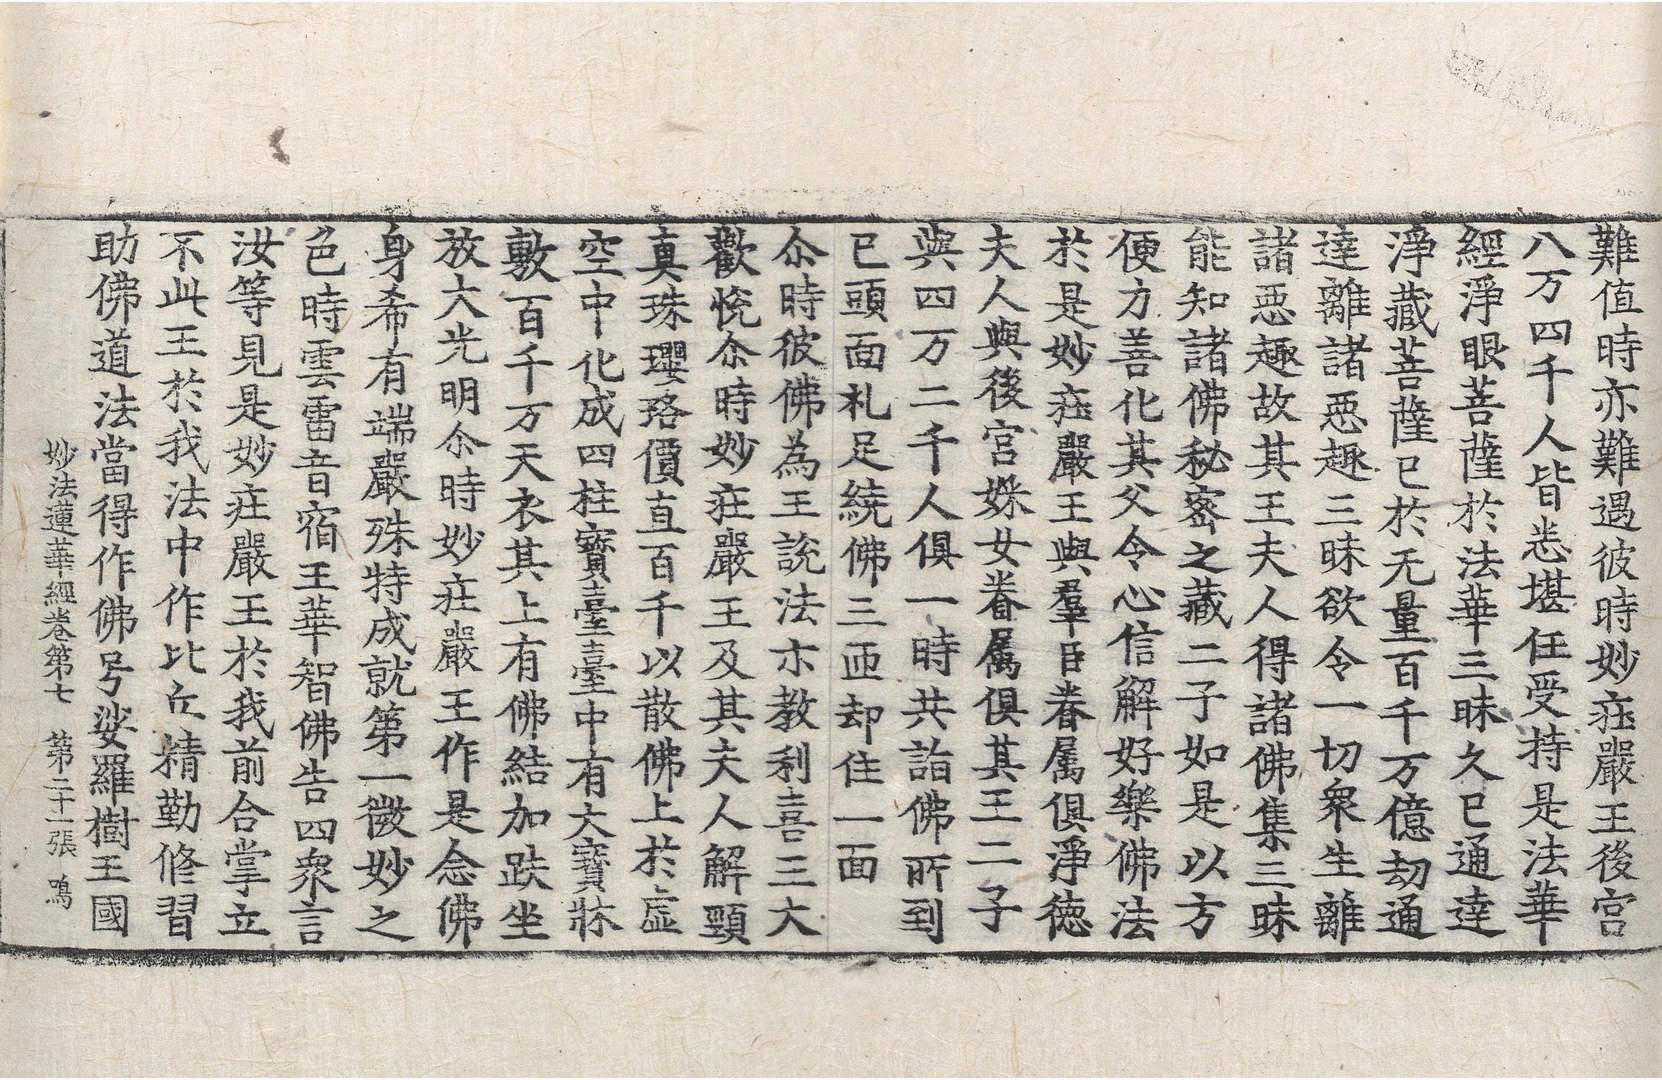 難值時亦難遇彼時妙疘嚴王後宮
八万四千人皆悉堪任受持是法華
經淨眼菩薩於法華三昧久已通達
淨藏菩薩已於无量百千万億劫通
達離諸惡趣三昧欲令一切衆生離
諸惡趣故其王夫人得諸佛集三昧
能知諸佛秘密之藏二子如是以方
便方善化其父令心信解好樂佛法
於是妙疘嚴王與羣臣眷属俱淨德
夫人與後宮婇女眷属俱其王二子
與四万二千人俱一時共詣佛所到
已頭面礼足繞佛三匝却住一面
尒時彼佛為王說法示教利喜三大
歡悅尒時妙疘嚴王及其夫人解頸
真珠瓔珞價直百千以散佛上於虛
空中化成四柱寶臺臺中有大寶牀
敷百千万天衣其上有佛結加趺坐
放大光明尒時妙疘嚴王作是念佛
身希有端嚴殊特成就第一微妙之
色時雲雷音宿王華智佛告四衆言
汝等見是妙疘嚴王於我前合掌立
不此王於我法中作比丘精勤修習
助佛道法當得作佛号娑羅樹王國
妙法蓮華經卷第七 第二十一張 鳴